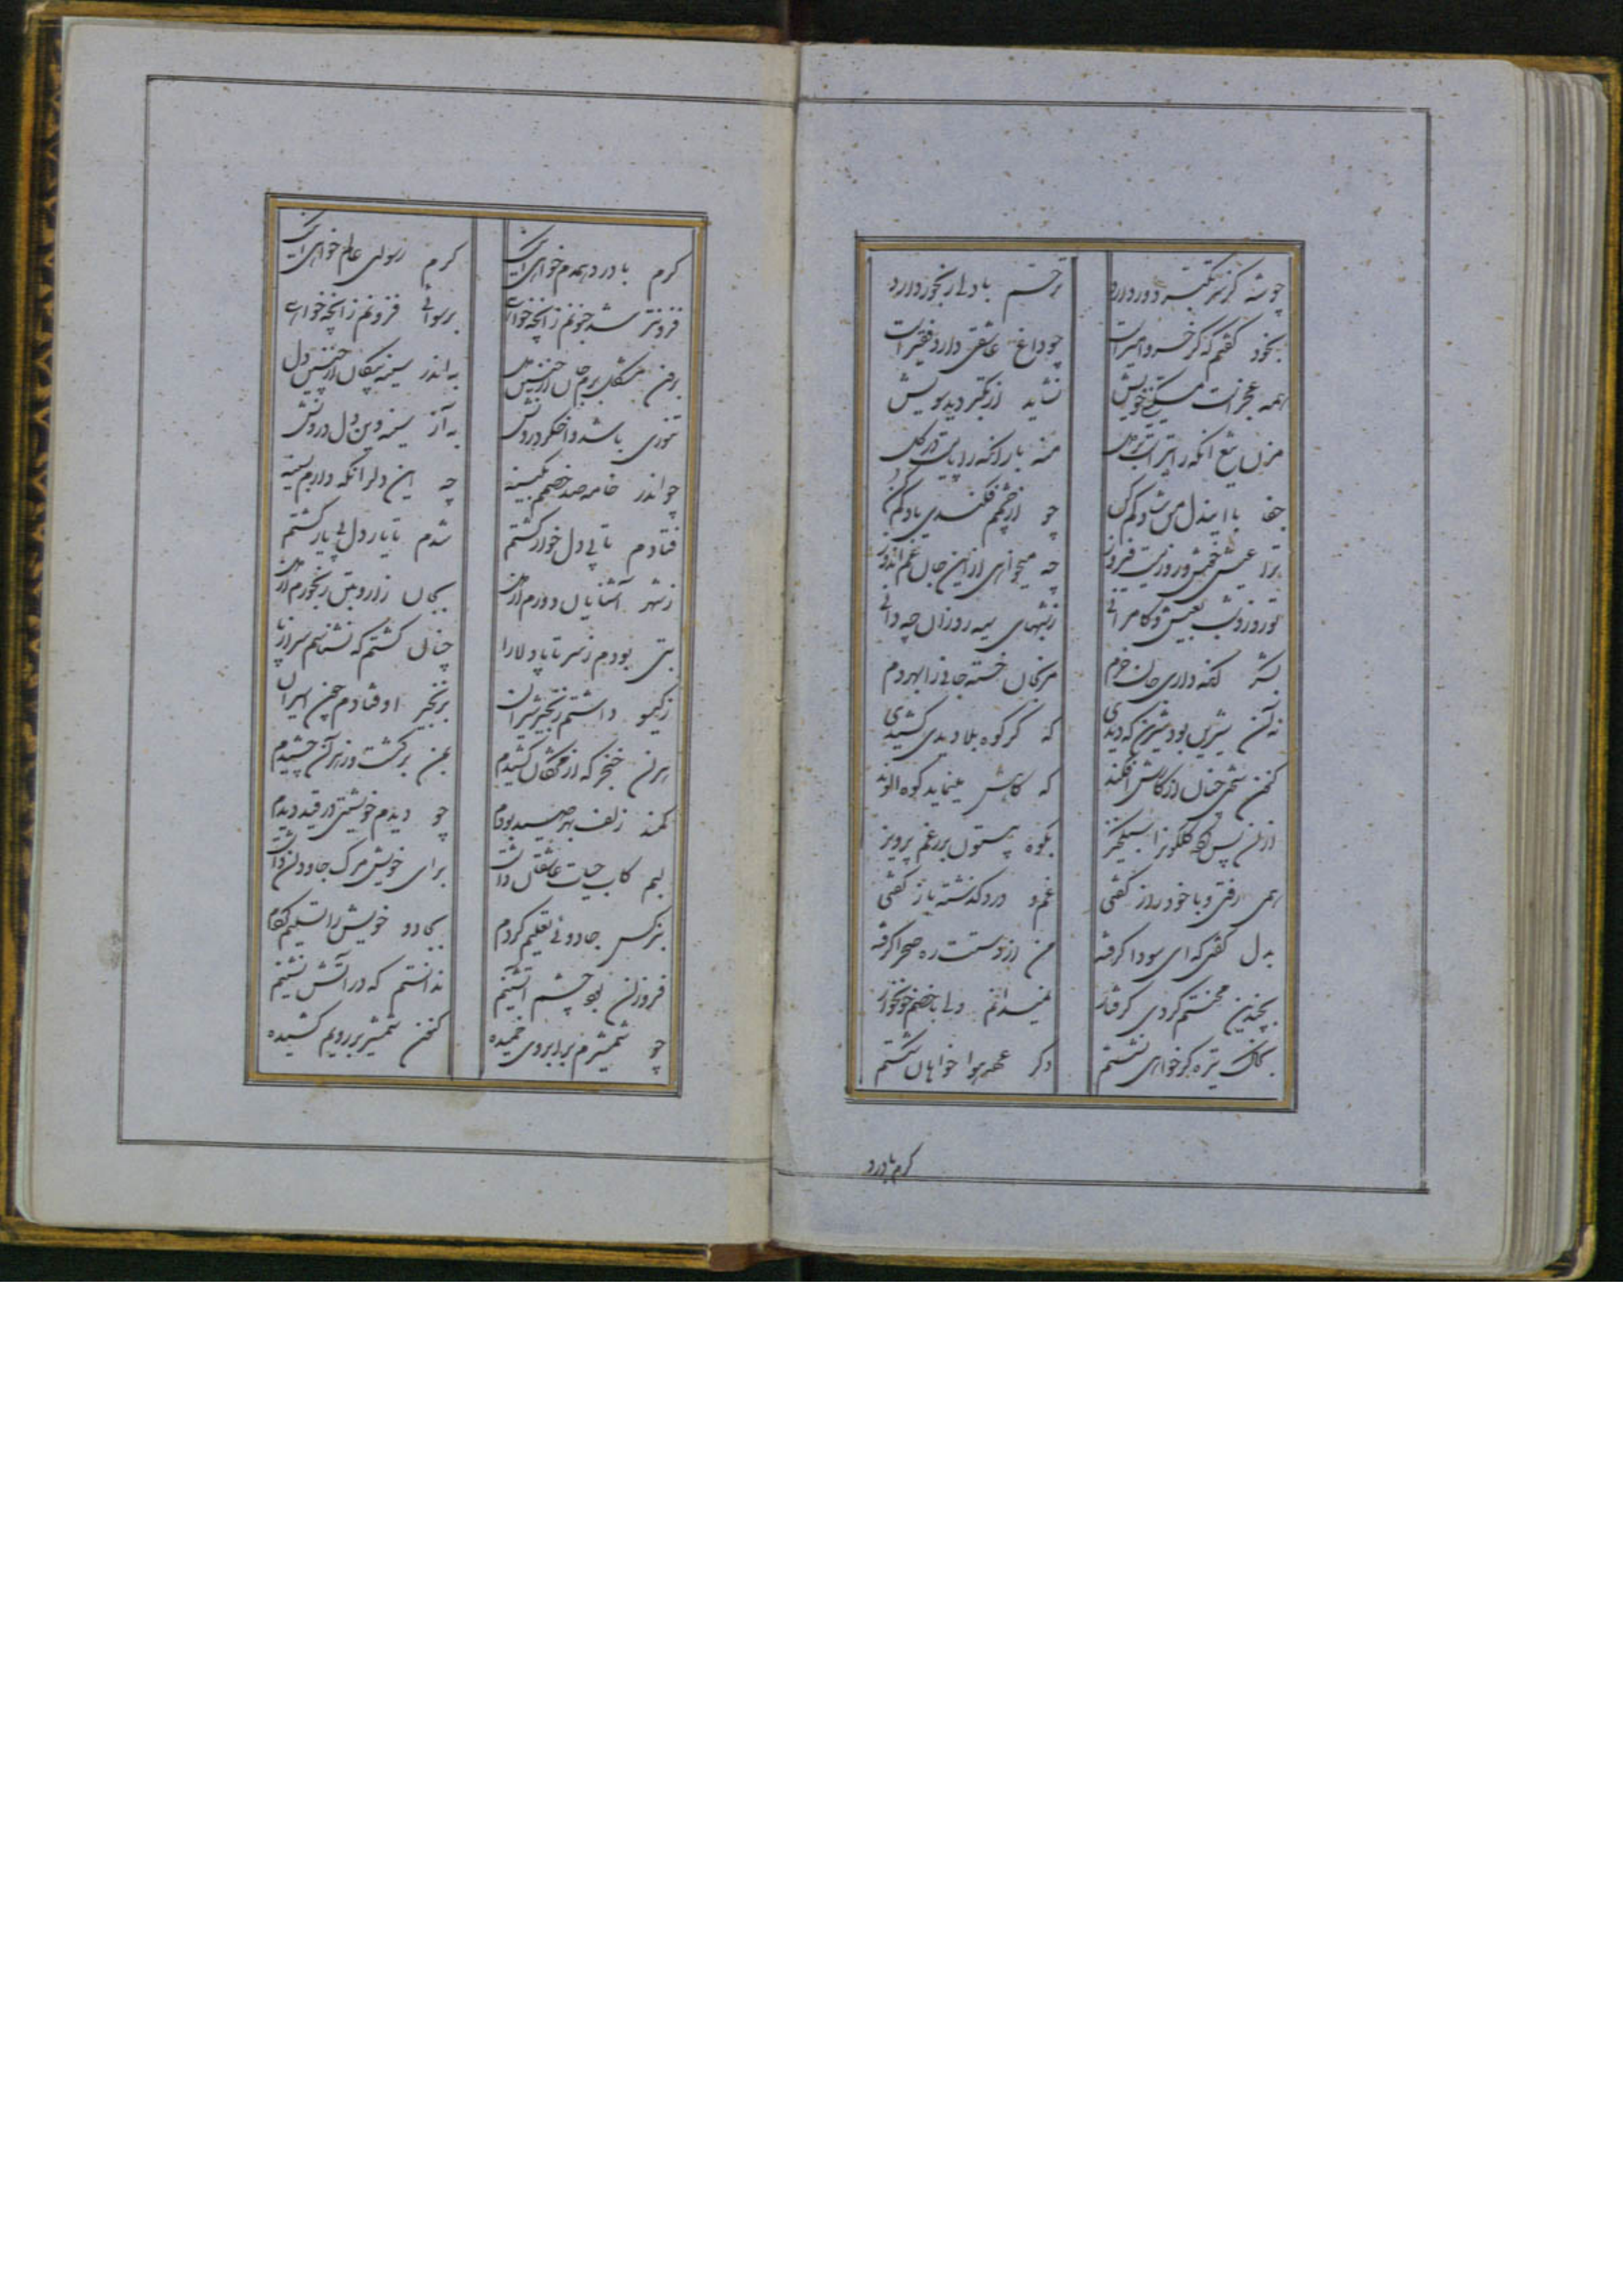 چو شه گر سر تکبر دور دارد ترحم با دل رنجور دارد
بخود گفتم که گر خسرو امیر است چو داغ عاشقی دارد فقیر است
همه عجز است مسکینی خویش نشاید از تکبر دید سویش
مزن تیغ آنکه را منه بار آنکه را پایست در گل
جفا با ایندل من شاد کم کن چو از چشمم فکندی یاد کم کن
ترا عیش خوش و روزیت فیروز چه میخواهی ازین جان غم اندوز
تو روز و شب بعیش و کامرانی ز شبهای سیه روزان چه دانی
بشکر آنکه داری جان خرم مرنجان خسته جانی را بهر دم
نه آن شیرین بود شیرین که دیدی که گر کوه بلا دیدی کشیدی
کنون سختی چنان از کارش افکند که کاهش مینماید کوه الوند
ازان پس گلگونرا سبکخیز بکوه بیستون بر رغم پرویز
همی رفتی و با خود راز گفتی غم و درد گذشته باز گفتی
بدل گفتی که ای سودا گرفته من از دستت ره صحرا گرفته
بچندین محنتم کردی گرفتار نمیدانم دلی یا خصم خونخوار
بخاک تیره گر خواهی نشستم دگر عهد هوا خواهان شکستم
کرم با درد
کرم با درد همدم خواهی اینک کرم رسوای عالم خواهی اینک
فزونتر شد جنونم زانچه خواهی برسوائی فزونم زانچه خواهی
بر من مشکل به اندر سینه پیکان از چنین دل
تنوری باشد و اخگر درونش به از سینه وین دل درونش
چو اندر خانه صد خصم بکینه چه این دل آنکه دارم بسینه
فتادم تا پی دل خوار گشتم شدم تا یار دل بی یار گشتم
ز شهر آشنایان دورم از دل بجان زار و بتن رنجورم از دل
بتی بودم ز سر تا پا دلارا چنان گشتم که نشناسم سر از پا
ز گیسو داشتم زنجیر شیران بزنجیر اوفتادم چون اسیران
هران خنجر که از مژگان کشیدم بمن برگشت و زهر آن چشیدم
کمند زلف بهر صید بودم چو دیدم خویشتن در قید دیدم
لبم کاب حیات عاشقان داشت برای خویش مرگ جاودان داشت
بنرگس جادوئی تعلیم کردم بجادو خویش را تسلیم کردم
فروزان چشم آتشینم ندانستم که در آتش نشینم
چو شمشیرم بد ابروی خمیده کنون شمشیر بر رویم کشیده